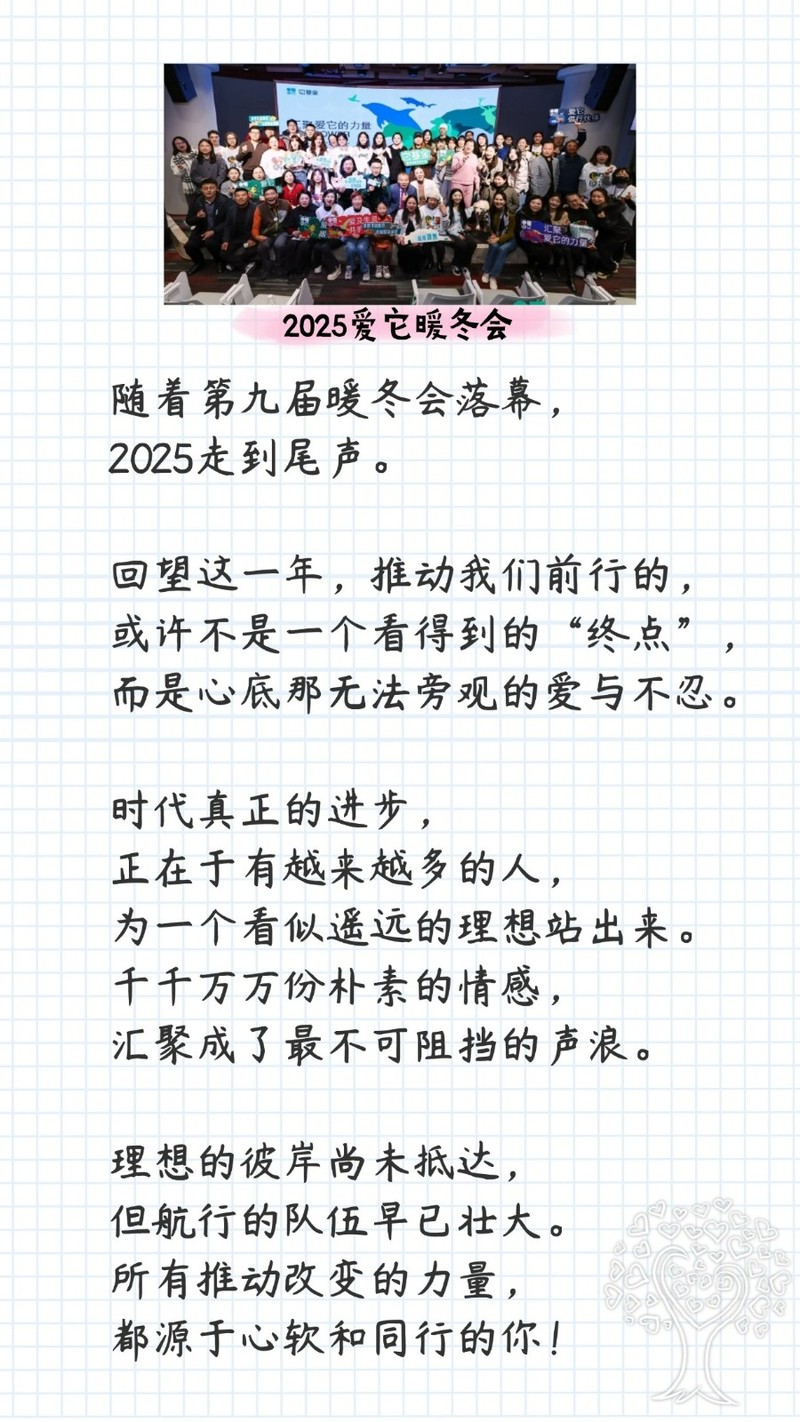 它基金
汇聚爱它的力量
汇聚
爱它的力量
2025爱它暖冬会
随着第九届暖冬会落幕，
2025走到尾声。
回望这一年，推动我们前行的，
或许不是一个看得到的“终点”，
而是心底那无法旁观的爱与不忍。
时代真正的进步，
正在于有越来越多的人，
为一个看似遥远的理想站出来。
千千万万份朴素的情感，
汇聚成了最不可阻挡的声浪。
理想的彼岸尚未抵达，
但航行的队伍早已壮大。
所有推动改变的力量，
都源于心软和同行的你！